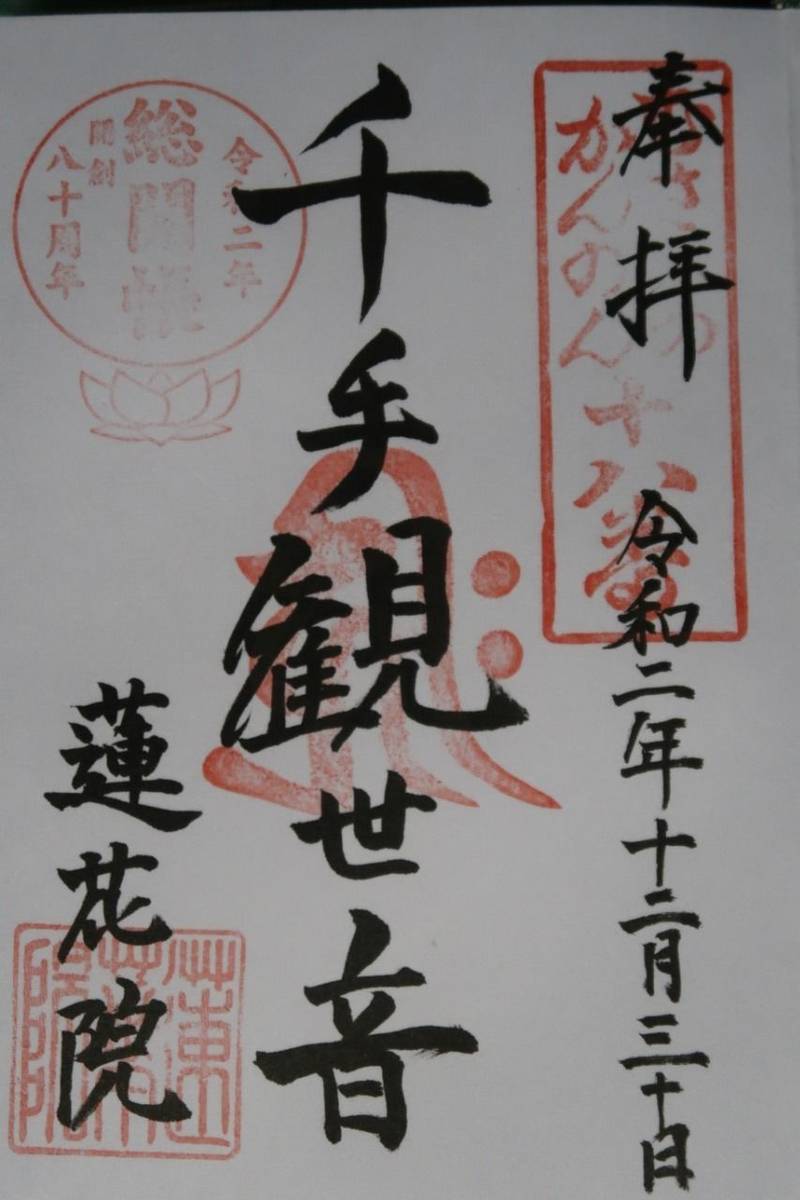 奉拝
令和二年十二月三十日
かんのん十八番
千手観世音
令和二年
総開帳
開創
八十周年
蓮花院